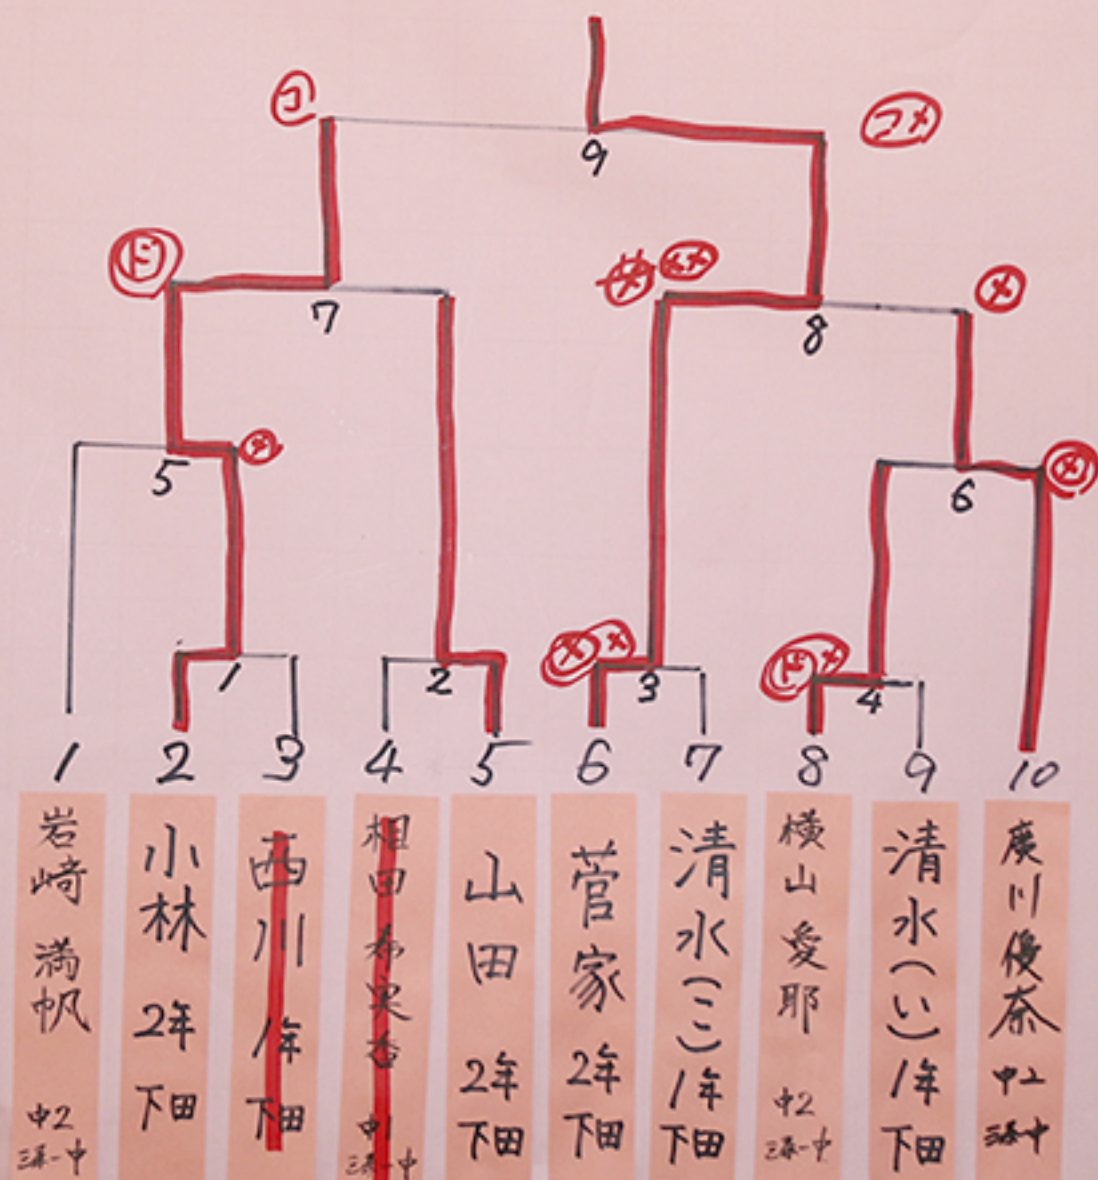 コ
コメ
9
ド
メメ
メ
7
8
メ
メ
5
6
メメ
ドメ
1
2
3
4
1 2 3 4 5 6 7 8 9 10
岩崎 満帆 中2
小林 2年 下田
西川 1年 下田
相田 希実香 中1
山田 2年 下田
菅家 2年 下田
清水(こ) 1年 下田
横山 愛耶 中2
清水(い) 1年 下田
廣川優奈 中2